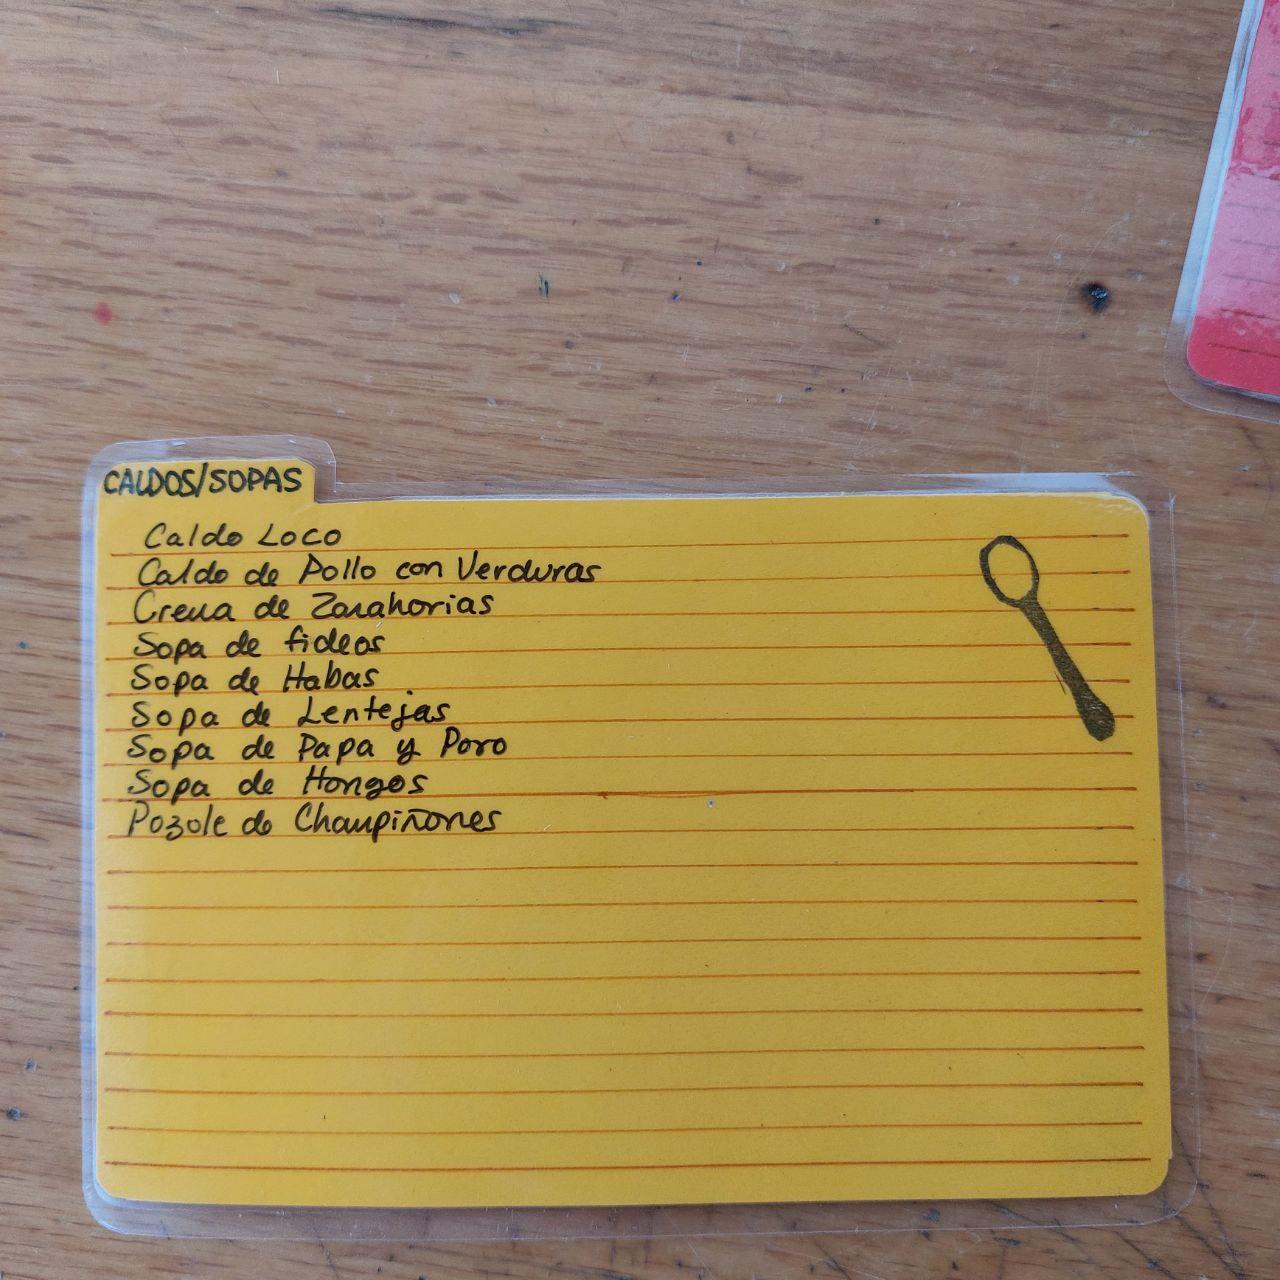 CALDOS/SOPAS
Caldo Loco
Caldo de Pollo con Verduras
Crema de Zanahorias
Sopa de fideos
Sopa de Habas
Sopa de Lentejas
Sopa de Papa y Poro
Sopa de Hongos
Pozole de Champiñones